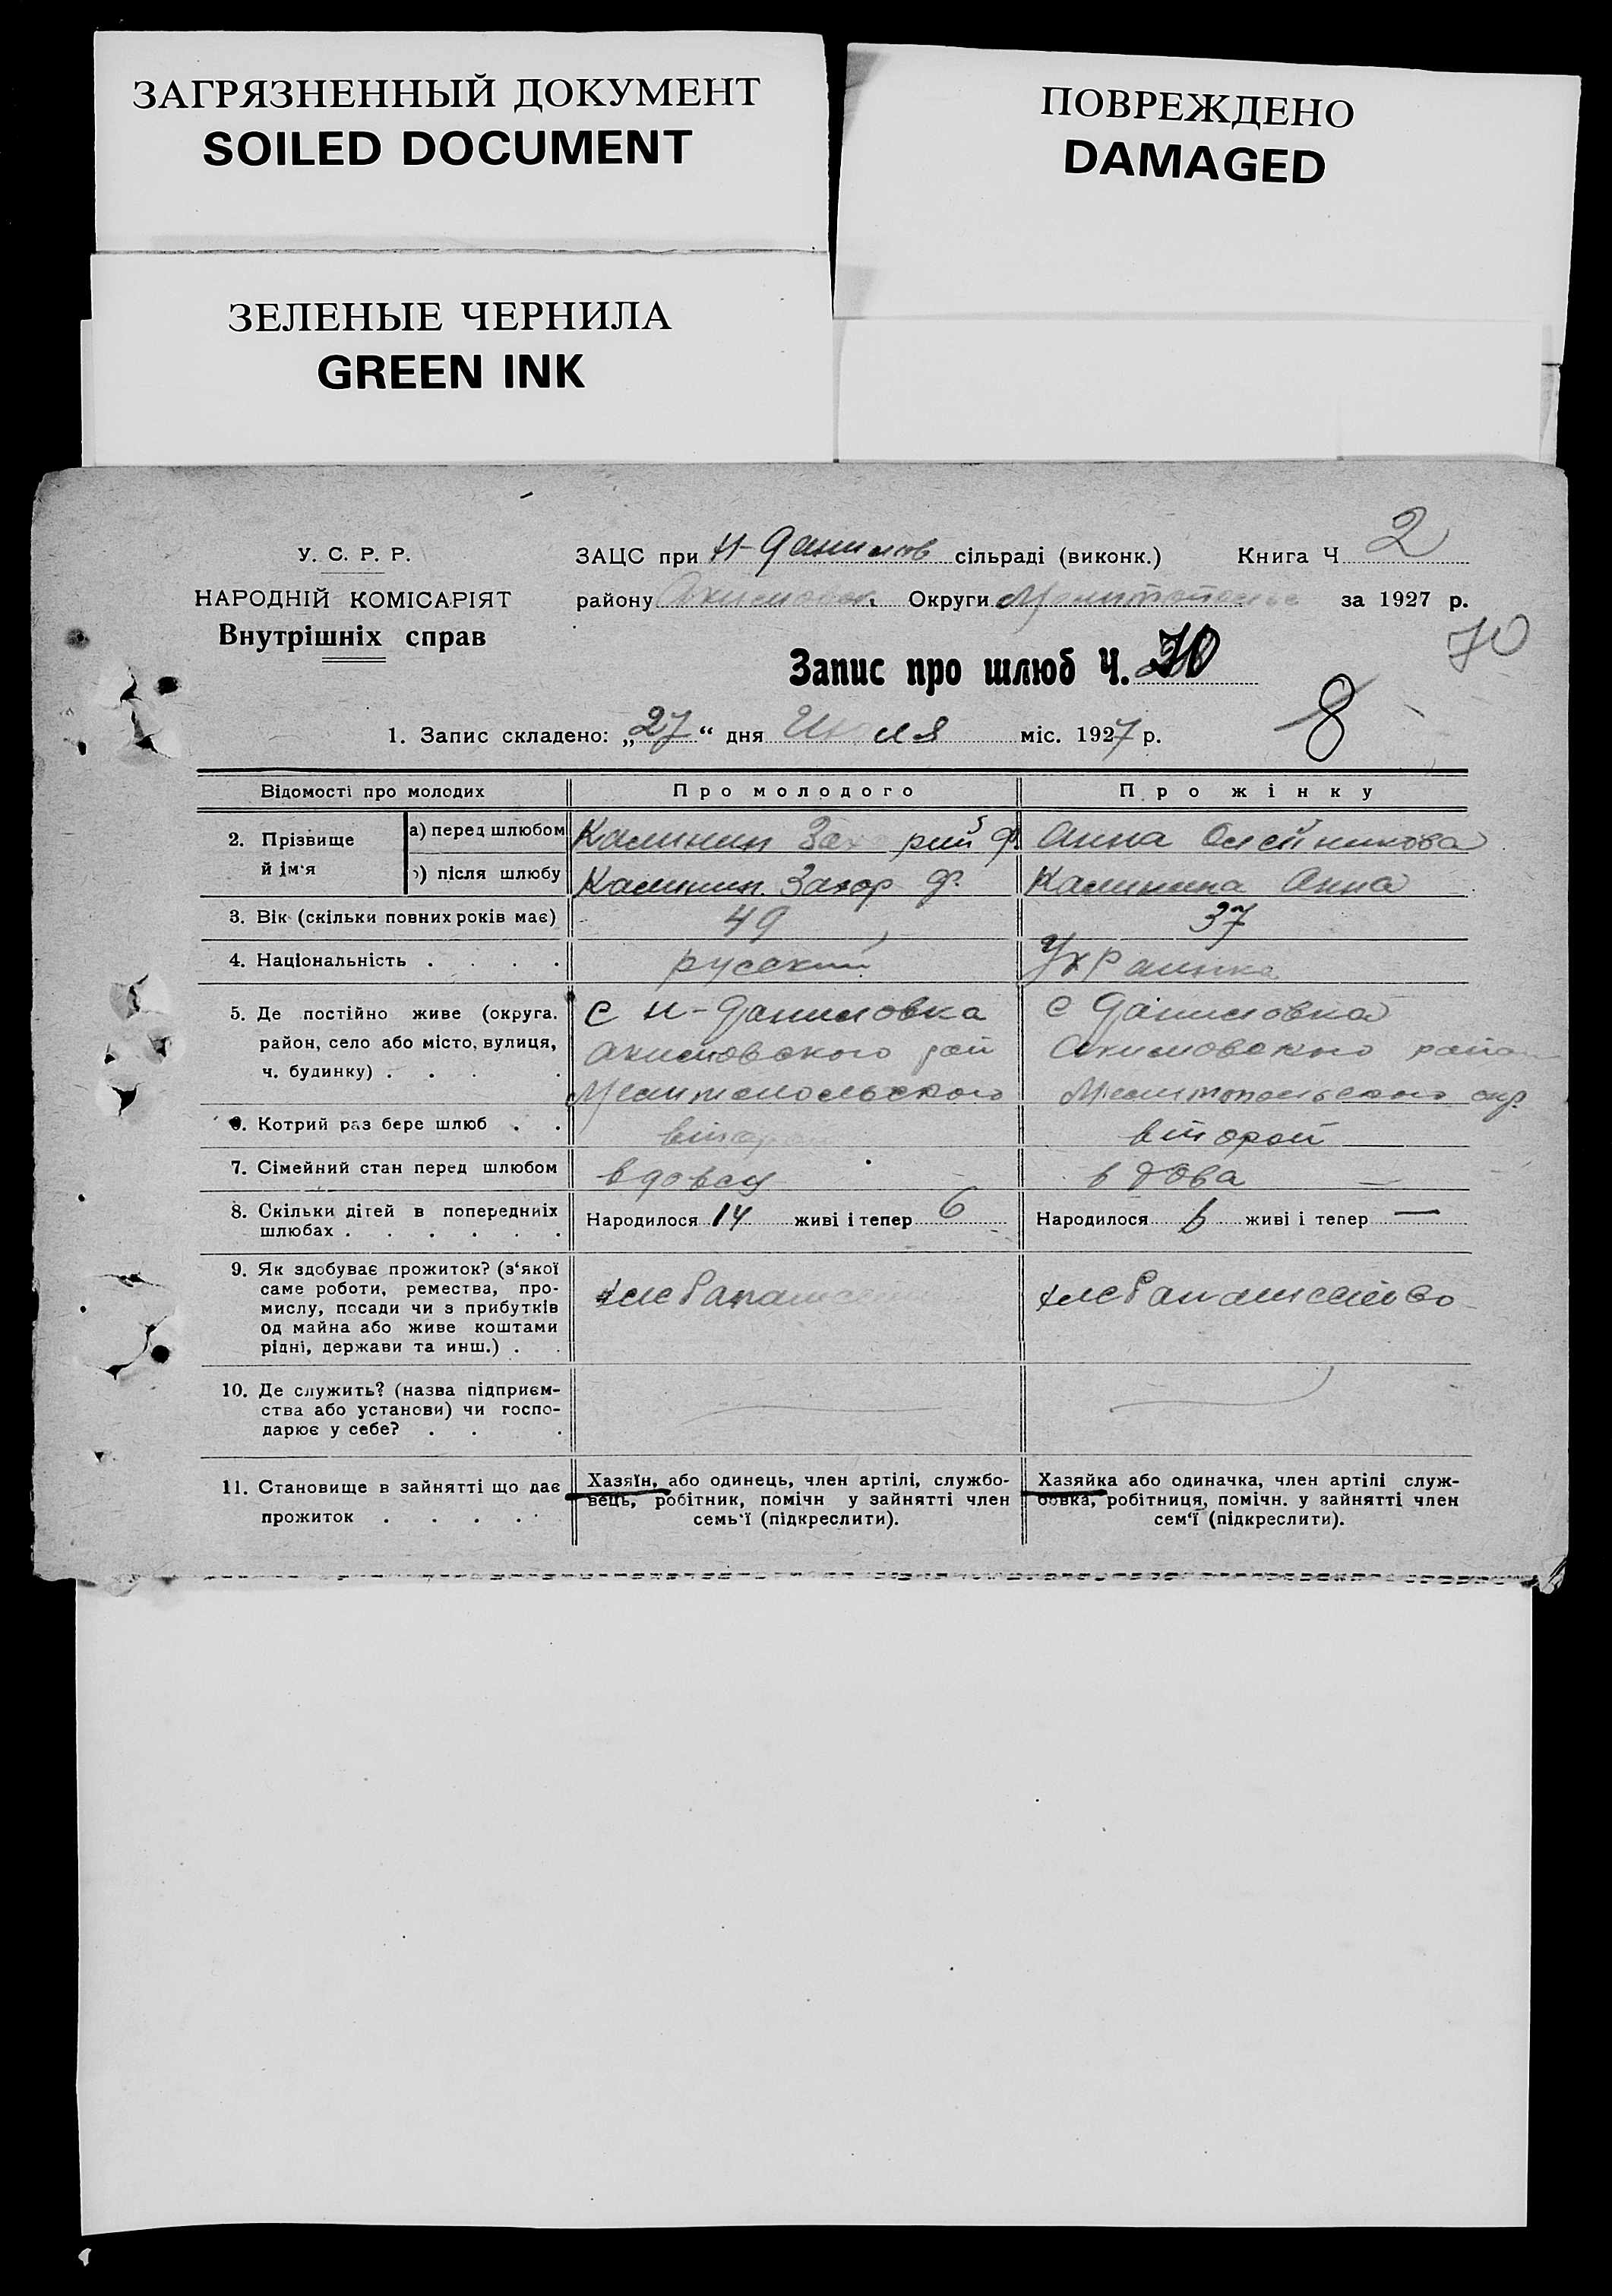 ЗАГРЯЗНЕННЫЙ ДОКУМЕНТ
SOILED DOCUMENT
ПОВРЕЖДЕНО
DAMAGED
ЗЕЛЕНЫЕ ЧЕРНИЛА
GREEN INK
У. С. Р. Р.
НАРОДНІЙ КОМІСАРІЯТ
Внутрішніх справ
ЗАЦС при Н-Данилов сільраді (виконк.) Книга Ч 2
району Акимовск. Округи за 1927 р.
70
Запис про шлюб Ч. 70
8
1. Запис складено: „27“ дня Июля міс. 1927 р.
Відомості про молодих Про молодого Про жінку
2. Прізвище й ім'я
а) перед шлюбом Калинин Захарий Ф Анна Олейникова
б) після шлюбу Калинин Захар Ф. Калинина Анна
3. Вік (скільки повних років має) 49 37
4. Національність . . . . русский Украинка
5. Де постійно живе (округа. с Н-Даниловка с Даниловка
район, село або місто, вулиця, Акимовского рай Акимовского района
ч. будинку) . . . . Мелитопольского Мелитопольского окр.
6. Котрий раз бере шлюб . . второй второй
7. Сімейний стан перед шлюбом вдовец вдова
8. Скільки дітей в попередниіх Народилося 14 живі і тепер 6 Народилося 6 живі і тепер —
шлюбах . . . . . .
9. Як здобуває прожиток? (з'якої
саме роботи, ремества, про-
мислу, посади чи з прибутків хлебопашество
од майна або живе коштами
рідні, держави та инш.) . .
10. Де служить? (назва підприєм-
ства або установи) чи госпо-
дарює у себе? . . .
11. Становище в зайнятті що дає
прожиток . . . . .
Хазяїн, або одинець, член артілі, службо-
вець, робітник, помічн у зайнятті член
семь'ї (підкреслити).
Хазяйка або одиначка, член артілі служ-
бовка, робітниця, помічн. у зайнятті член
сем'ї (підкреслити).